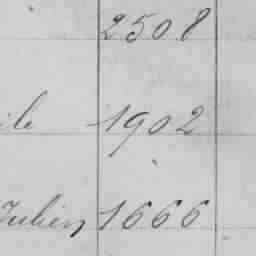 2508
ile 1902
Julien 1666